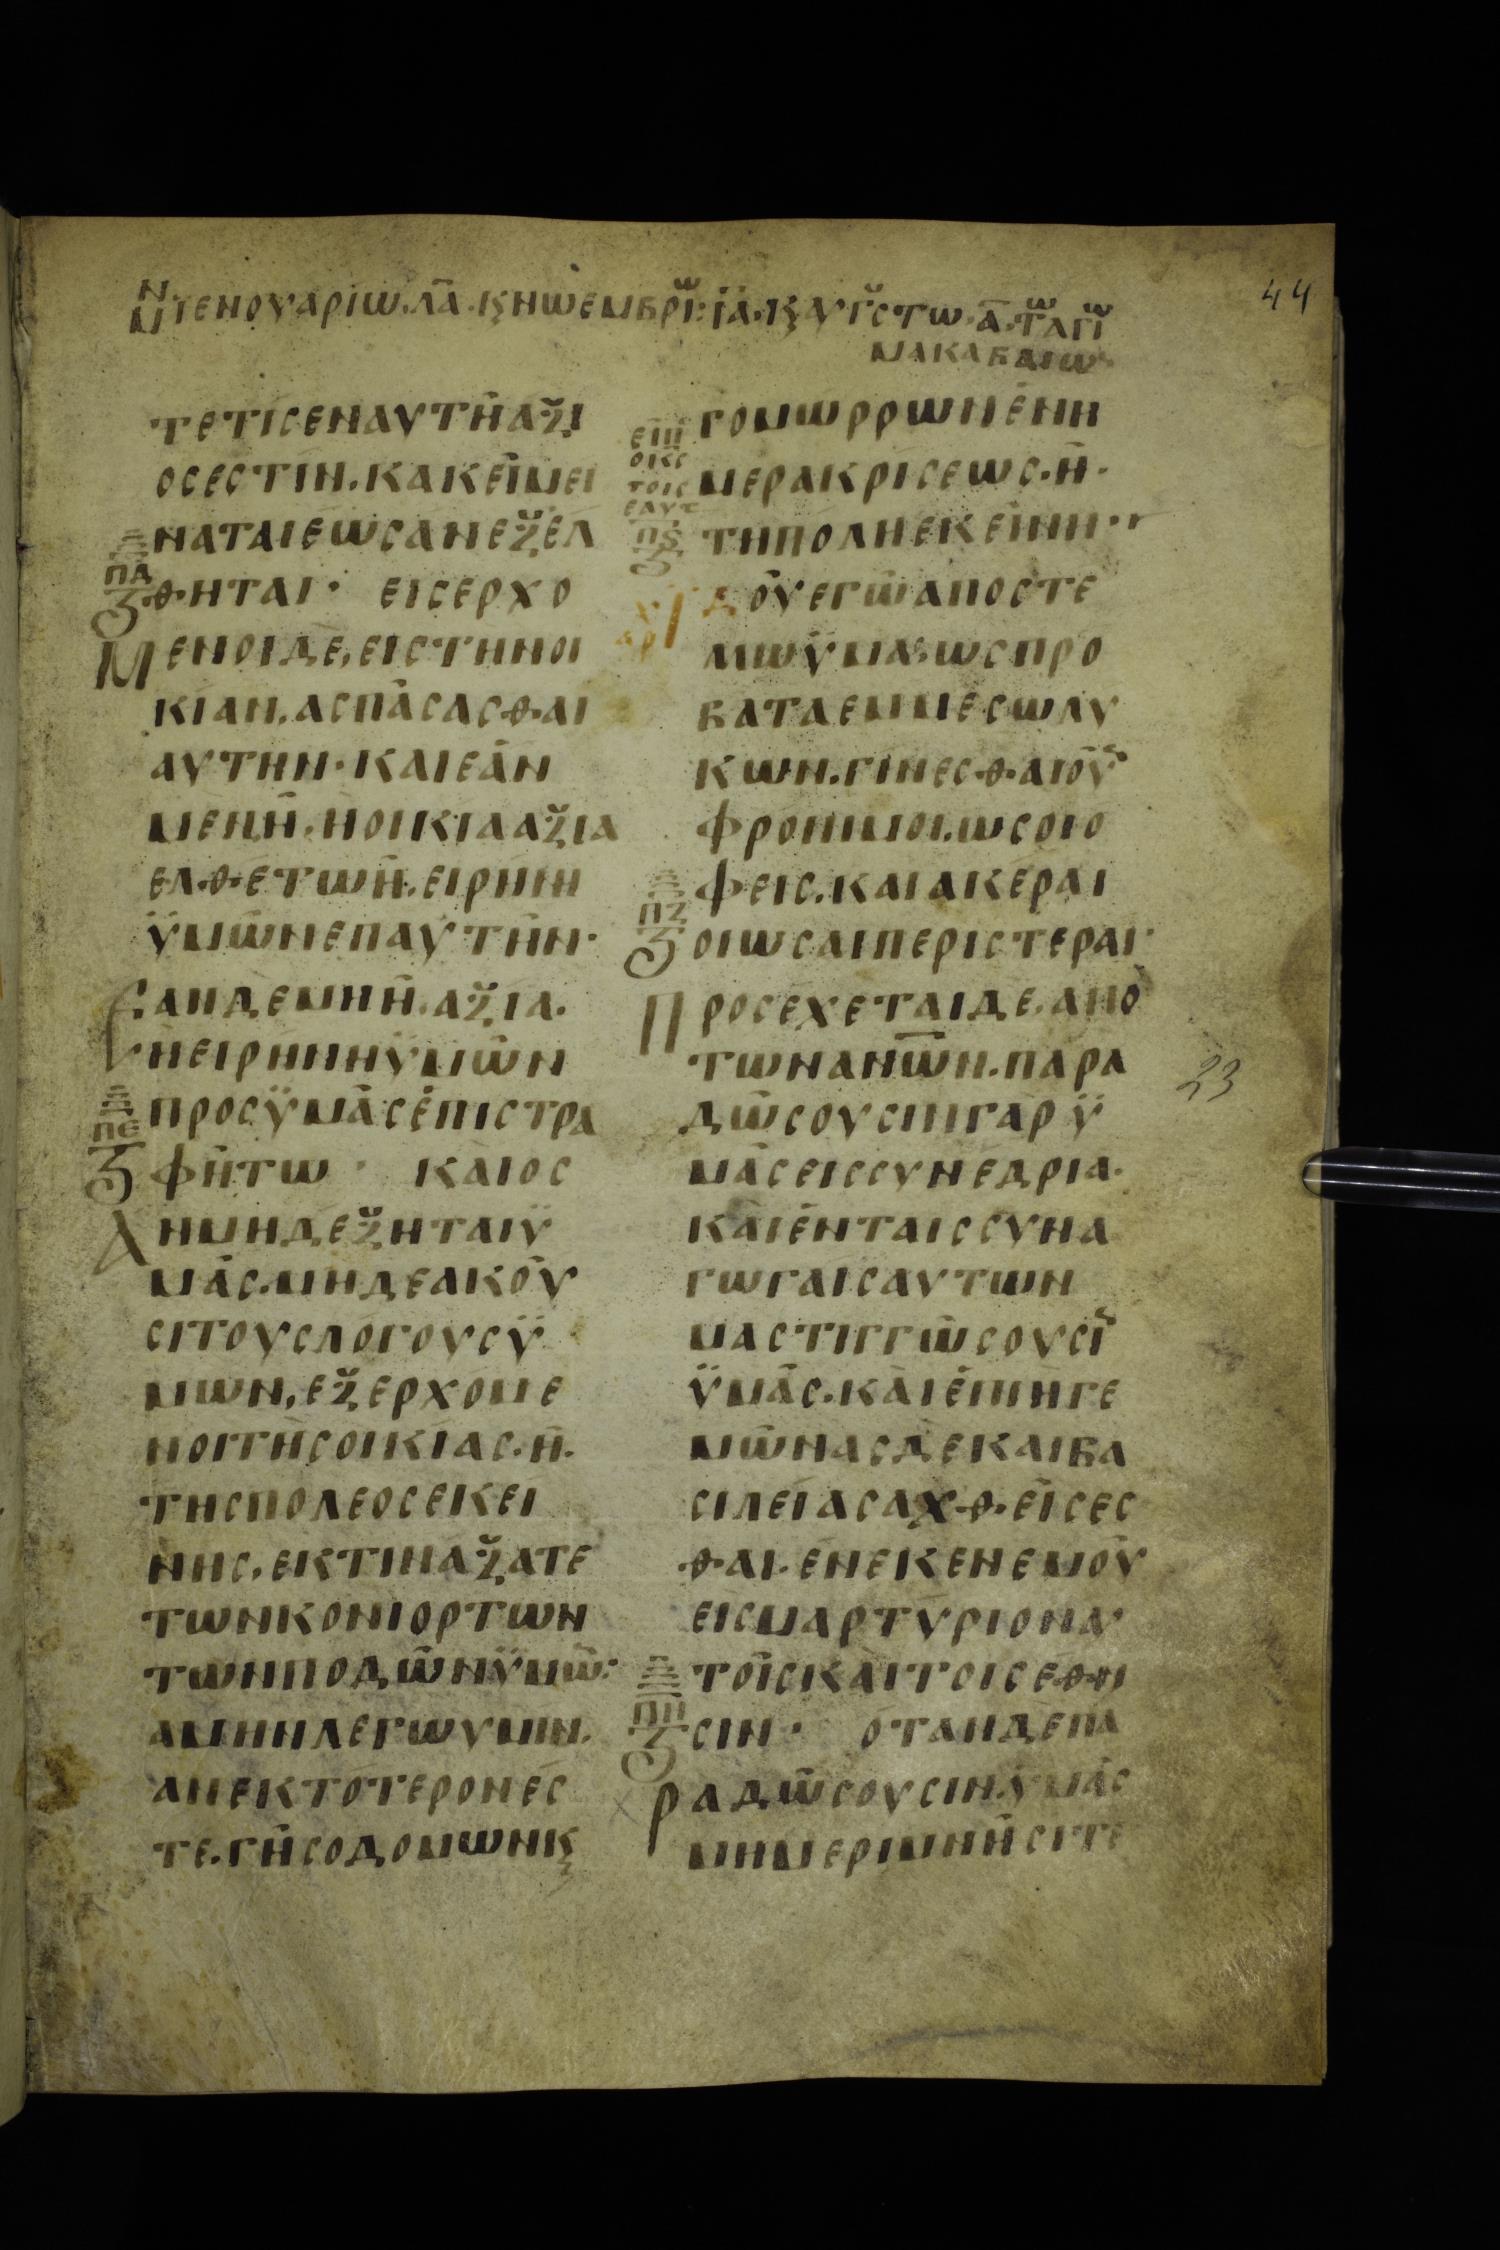 44
ΜΝ ΙΕΝΟΥΑΡΙΩ. ΛΑ. Κ ΝΟΕΜΒΡΙΩ: ΙΑ. Κ ΑΥΓΣΤΩ. Α. ΤΩ ΑΓΙΩ
ΜΑΚΑΒΑΙΩ
ΤΕΤΙϹΕΝΑΥΤΗΑΞΙ
ΟϹΕϹΤΙΝ.ΚΑΚΕΙΜΕΙ
ΝΑΤΑΙΕΩϹΑΝΕΞΕΛ
ΠΔ
Ϛ
ΘΗΤΑΙ· ΕΙϹΕΡΧΟ
ΜΕΝΟΙΔΕ,ΕΙϹΤΗΝΟΙ
ΚΙΑΝ.ΑϹΠΑϹΑϹΘΑΙ
ΑΥΤΗΝ·ΚΑΙΕΑΝ
ΜΕΝΗ.ΗΟΙΚΙΑΑΞΙΑ
ΕΛΘΕΤΩΗ.ΕΙΡΗΝΗ
ΫΜΩΝΕΠΑΥΤΗΝ·
ΕΑΝΔΕΜΗΗ.ΑΞΙΑ.
ΗΕΙΡΗΝΗΫΜΩΝ
ΠΕ
Ϛ
ΠΡΟϹΫΜΑϹΕΠΙϹΤΡΑ
ΦΗΤΩ· ΚΑΙΟϹ
ΑΝΜΗΔΕΞΗΤΑΙΫ
ΜΑϹ.ΜΗΔΕΑΚΟΥ
ϹΙΤΟΥϹΛΟΓΟΥϹΫ
ΜΩΝ,ΕΞΕΡΧΟΜΕ
ΝΟΙΤΗϹΟΙΚΙΑϹ.Η.
ΤΗϹΠΟΛΕΟϹΕΙΚΕΙ
ΝΗϹ.ΕΚΤΙΝΑΞΑΤΕ
ΤΩΝΚΟΝΙΟΡΤΩΝ
ΤΩΝΠΟΔΩΝΫΜΩ:
ΑΜΗΝΛΕΓΩΥΜΙΝ.
ΑΝΕΚΤΟΤΕΡΟΝΕϹ
ΤΕ.ΓΗϹΟΔΟΜΩΝΚ
ΓΟΜΩΡΡΩΝΕΝΗ
ΜΕΡΑΚΡΙϹΕΩϹ.Η·
ΠϚ
Ϛ
ΤΗΠΟΛΗΕΚΕΙΝΗ··
ΙΔΟΥΕΓΩΑΠΟϹΤΕ
ΛΛΩΫΜΑϹΩϹΠΡΟ
ΒΑΤΑΕΜΜΕϹΩΛΥ
ΚΩΝ.ΓΙΝΕϹΘΑΙΟΥ
ΦΡΟΝΙΜΟΙ.ΩϹΟΙΟ
ΦΕΙϹ.ΚΑΙΑΚΕΡΑΙ
ΠΖ
Ϛ
ΟΙΩϹΑΙΠΕΡΙϹΤΕΡΑΙ·
ΠΡΟϹΕΧΕΤΑΙΔΕ.ΑΠΟ
ΤΩΝΑΝΩΝ.ΠΑΡΑ
23
ΔΩϹΟΥϹΙΝΓΑΡΫ
ΜΑϹΕΙϹϹΥΝΕΔΡΙΑ.
ΚΑΙΕΝΤΑΙϹϹΥΝΑ
ΓΩΓΑΙϹΑΥΤΩΝ
ΜΑϹΤΙΓΓΩϹΟΥϹΙ
ΫΜΑϹ.ΚΑΙΕΠΗΓΕ
ΜΩΝΑϹΔΕΚΑΙΒΑ
ϹΙΛΕΙΑϹΑΧΘΕΙϹΕϹ
ΘΑΙ·ΕΝΕΚΕΝΕΜΟΥ
ΕΙϹΜΑΡΤΥΡΙΟΝΑΥ
ΤΟΙϹΚΑΙΤΟΙϹΕΘΝ
ΠΗ
Ϛ
ϹΙΝ· ΟΤΑΝΔΕΠΑ
ΡΑΔΩϹΟΥϹΙΝΫΜΑϹ
ΜΗΜΕΡΙΜΝΗϹΙΤΕ